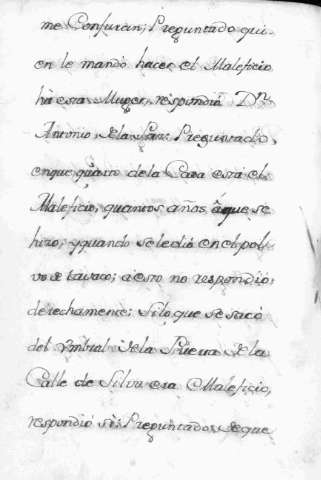 me Conjuran; Preguntado qui-
en le mandò hacer el Maleficio
hà esta Muger, respondiò Dn.
Antonio dela Paz: Preguntado,
enque quàrto dela Casa està el
Maleficio, quantos años âque se
hizo, yquando seledio en el pol-
vo de tavaco; aesto no respondiò,
derechamente: Silo que se sacò
del Vmbral dela Puerta de la
Calle de Silva era Maleficio,
respondiò sì: Preguntado: deque